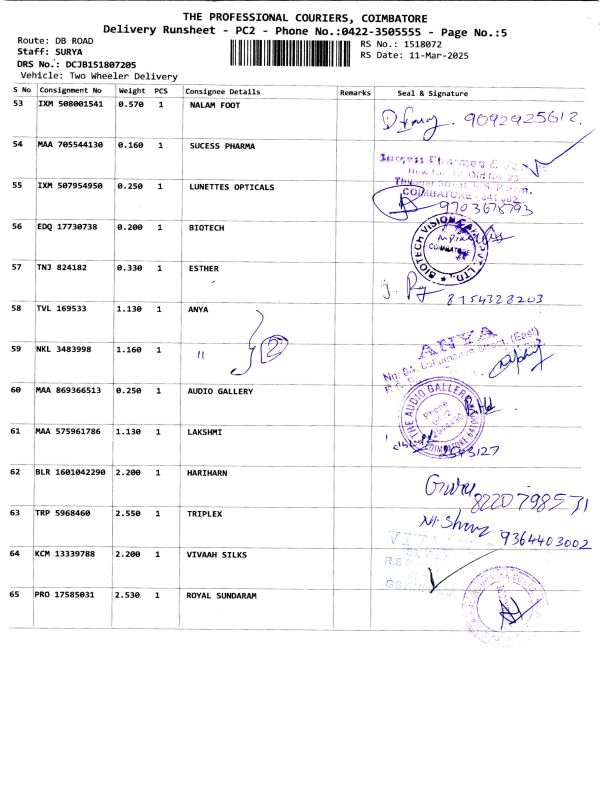 THE PROFESSIONAL COURIERS, COIMBATORE
Delivery Runsheet - PC2 - Phone No.:0422-3505555 - Page No.:5
Route: DB ROAD
Staff: SURYA
DRS No.: DCJB151807205
Vehicle: Two Wheeler Delivery
RS No.: 1518072
RS Date: 11-Mar-2025
S No Consignment No Weight PCS Consignee Details Remarks Seal & Signature
53 IXM 508001541 0.570 1 NALAM FOOT
9092925612.
54 MAA 705544130 0.160 1 SUCESS PHARMA
COIMBATORE - 641 002
55 IXM 507954950 0.250 1 LUNETTES OPTICALS
9703678793
56 EDQ 17730738 0.200 1 BIOTECH
BIOTECH VISION CARE PVT LTD.
COIMBATORE
57 TNJ 824182 0.330 1 ESTHER
8154328203
58 TVL 169533 1.130 1 ANYA
ANYA
59 NKL 3483998 1.160 1 " 2
60 MAA 869366513 0.250 1 AUDIO GALLERY
THE AUDIO GALLERY
Phone
61 MAA 575961786 1.130 1 LAKSHMI
2543127
62 BLR 1601042290 2.200 1 HARIHARN
8220798531
63 TRP 5968460 2.550 1 TRIPLEX
9364403002
64 KCM 13339788 2.200 1 VIVAAH SILKS
65 PRO 17585031 2.530 1 ROYAL SUNDARAM